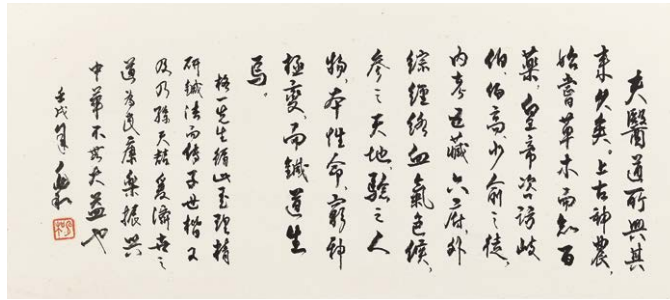 夫醫道所興其
來久矣。上古神農,
始嘗草木而知百
藥,皇帝咨訪岐
伯、伯高、少俞之徒,
內考五藏六府,外
綜經絡血氣色候,
參之天地,驗之人
物,本性命,窮神
極變,而鍼道生
焉。
格一先生循此至理精
研鍼法而傳子世楷又
及乃孫天喆爰濟喜之
道為民康樂振興
中華不世大益也
壬戌